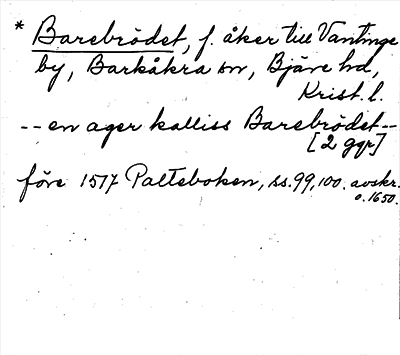 * Barebrödet, f. åker till Vantinge
by, Barkåkra sn, Bjäre hd,
Krist. l.
-- en ager kalliss Barebrödet --
[2 ggr]
före 1577 Palteboken, ss. 99, 100. avskr.
o. 1650.